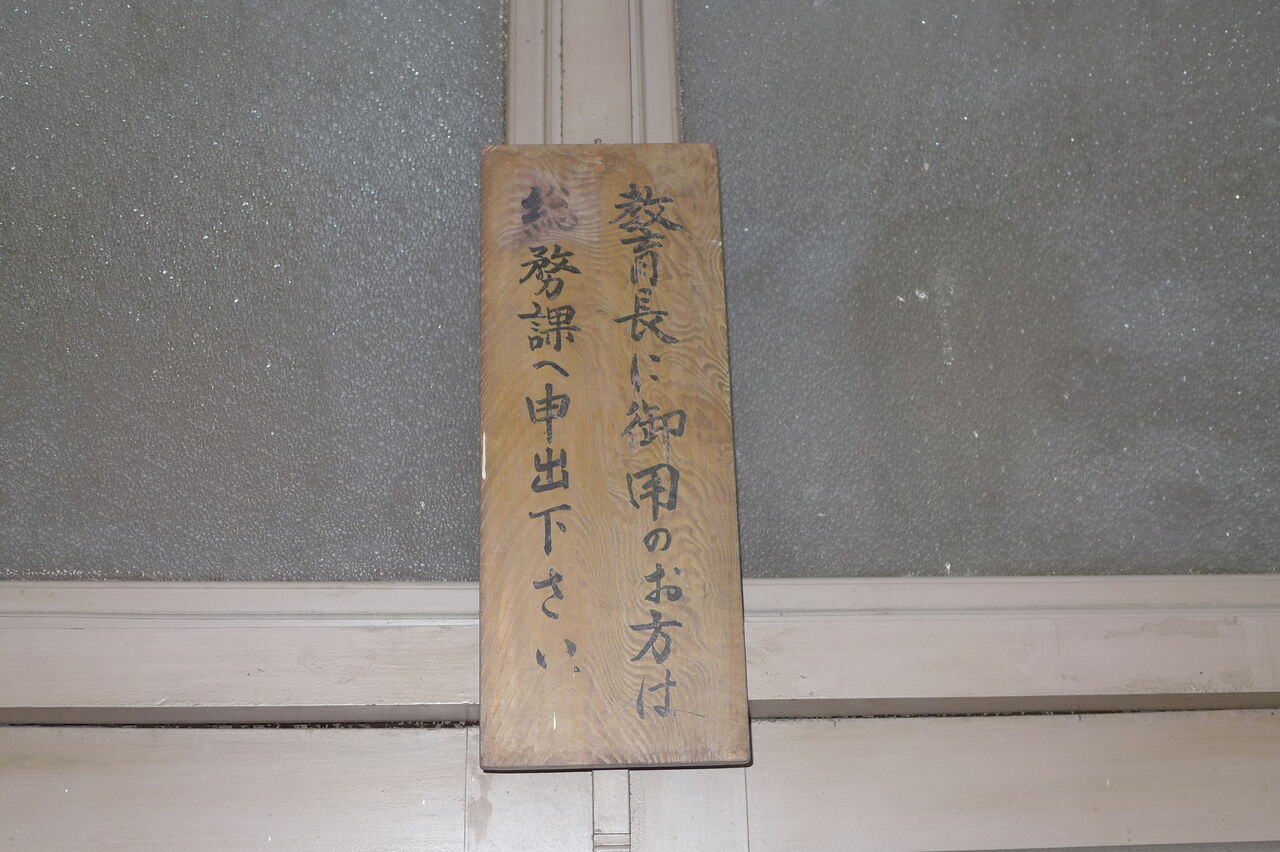 教育長に御用のお方は
総務課へ申出下さい